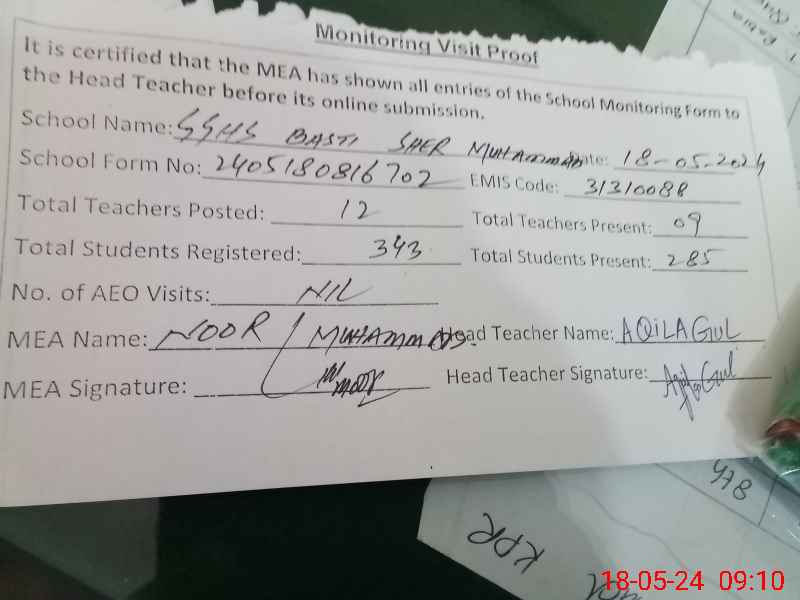 Monitoring Visit Proof
It is certified that the MEA has shown all entries of the School Monitoring Form to
the Head Teacher before its online submission.
School Name: GGHS BASTI SHER MUHAMMAD Date: 18-05-2024
School Form No: 2405180816702 EMIS Code: 31310088
Total Teachers Posted: 12 Total Teachers Present: 09
Total Students Registered: 343 Total Students Present: 285
No. of AEO Visits: NIL
MEA Name: NOOR MUHAMMAD Head Teacher Name: AQiLA GUL
MEA Signature: Head Teacher Signature: Aqila Gul
8th
KPR
18-05-24 09:10